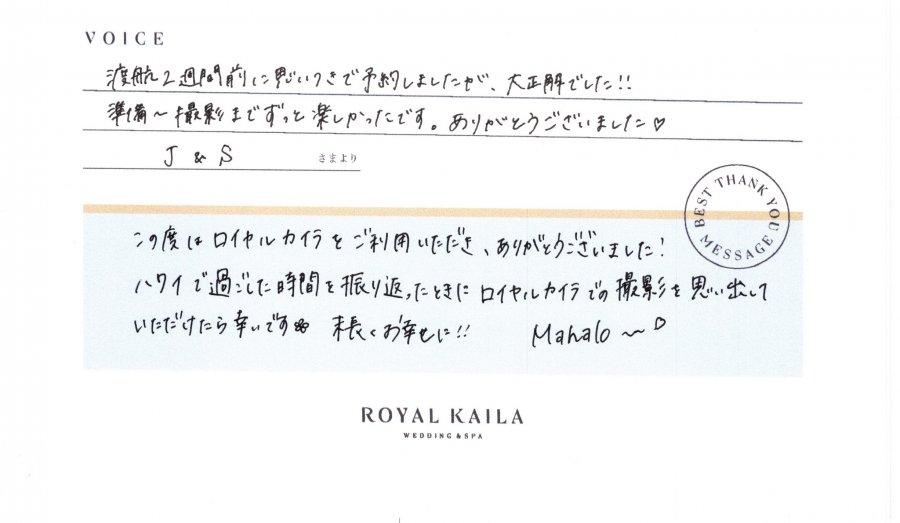 VOICE
渡航2週間前に思いつきで予約しましたが、大正解でした!!
準備～撮影までずっと楽しかったです。ありがとうございました♡
J & S さまより
BEST THANK YOU MESSAGE
この度はロイヤルカイラをご利用いただき、ありがとうございました!
ハワイで過ごした時間を振り返ったときにロイヤルカイラでの撮影を思い出して
いただけたら幸いです 末長くお幸せに!! Mahalo～♡
ROYAL KAILA
WEDDING & SPA